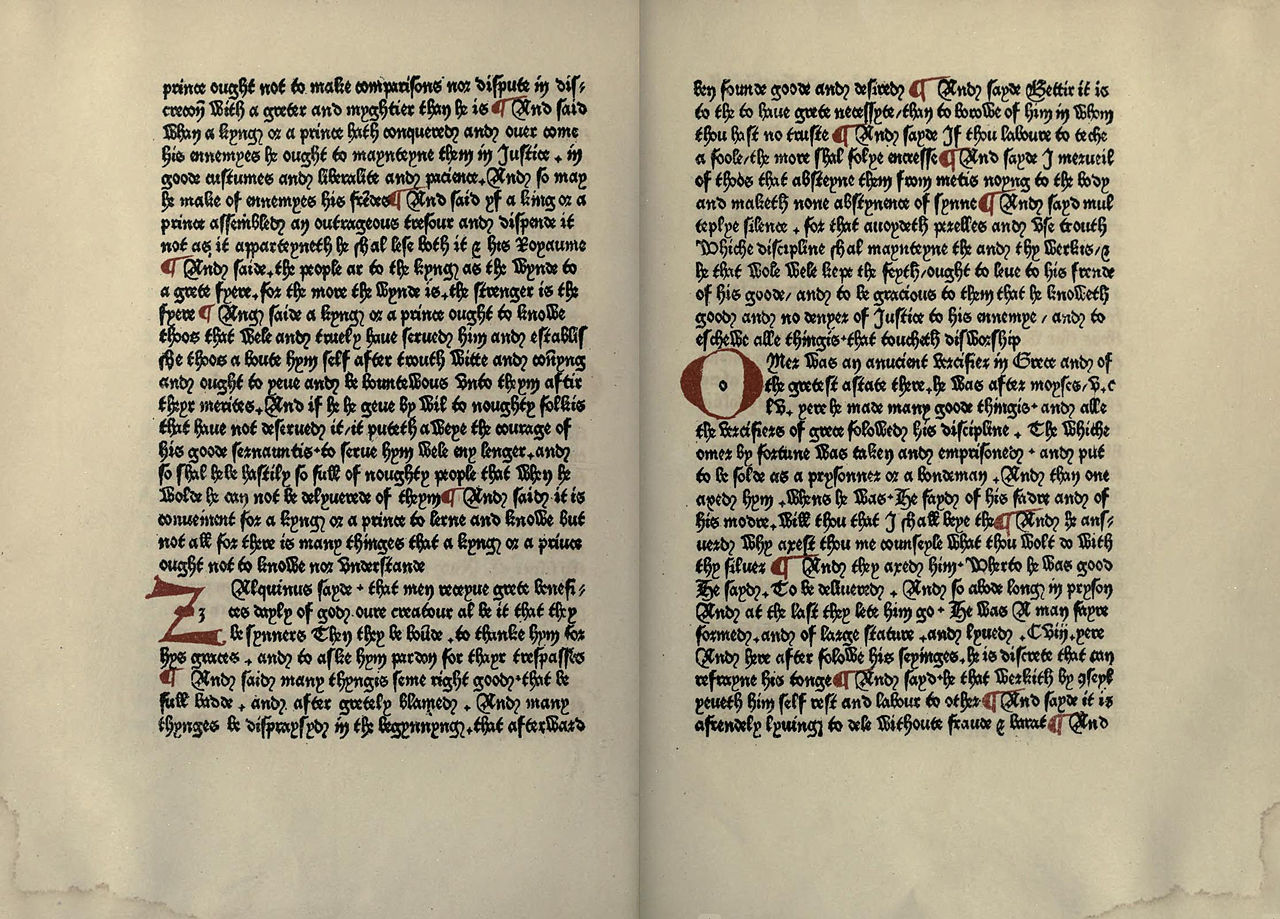 prince ought not to make comparisons nor dispute in dis⸗
crecon̄ With a greter and myghtier than he is ¶ And said
Whan a kyng or a prince hath conquered and ouer come
his ennemyes he ought to maynteyne them in Justice . in
goode custumes and liberalite and pacience. And so may
he make of ennemyes his frēdes ¶ And said yf a king or a
prince assembled an outrageous tresour and dispende it
not as it apparteyneth he shal lese both it & his Royaume
¶ And saide .the people ar to the kyng as the Wynde to
a grete fyere .for the more the Wynde is .the strenger is the
fyere ¶ Ang saide a kyng or a prince ought to knoWe
thoos that Wele and truely haue serued him and establis
she thoos a boute hym self after trouth Witte and con̄yng
and ought to yeue and be bounteWous Vnto theym aftir
theyr merites . And if he he geue by Wil to noughty folkis
that haue not deserued it/it puteth aWeye the courage of
his goode seruauntis· to serue hym Wele eny lenger .and
so shal hebe hastily so full of noughty people that When he
Wolde he can not be delyuerede of theym ¶ And said it is
conuenient for a kyng or a prince to lerne and knoWe but
not all for there is many thinges that a kyng or a prince
ought not to knoWe nor Vnderstande
Z z Alquinus sayde · that men receyue grete benefi⸗
ces dayly of god. oure creatour al be it that they
be synners Then they be boūde .to thanke hym for
hys graces . and to aske hym pardon for thayr trespasses
¶ And said many thyngis seme right good· that be
full badde . and after gretely blamed . And many
thynges be dispraysyd in the begynnyng .that afterWard
ben founde goode and desired ¶ And sayde Bettir it is
to the to haue grete necessyte/than to boroWe of him in Whom
thou hast no truste ¶ And sayde If thou laboure to teche
a foole/the more shal folye encresse ¶ And sayde I merueil
of thoos that absteyne them from metis noyng to the body
and maketh none abstynence of synne ¶ And sayd mul
teplye silence . for that auoydeth perelles and Vse trouth
Whiche discipline shal maynteyne the and thy Werkis/&
he that Wole Wele kepe the feyth/ought to leue to his frende
of his goode/ and to be gracious to them that he knoWeth
good and no denyer of Justice to his ennemye / and to
escheWe alle thingis· that toucheth disWorship
O o Mer Was an auncient Versifier in Grece and of
the gretest astate there .he Was after moyses/V.c
lV. yere he made many goode thingis· and alle
the Versifiers of grece foloWed his discipline . The Whiche
omer by fortune Was taken and emprisoned · and put
to be solde as a prysonner or a bondeman . And than one
axed hym .Whens he Was· He sayd of his fadre and of
his modre .Will thou that I shall beye the ¶ And he ans⸗
uerd Why axest thou me counseyle What thou Wolt do With
thy siluer ¶ And they axed him· Wherto he Was good
He sayd . To be deliuered . And so abode long in pryson
And at the last they lete him go · He Was A man fayre
formed .and of large stature .and lyued .CViij. yere
And here after foloWe his seyinges .he is discrete that can
refrayne his tonge ¶ And sayd· he that Werkith by ꝯseyl
yeueth him self rest and labour to other ¶ And sayde it is
afrendely lyuing to dele Withoute fraude & barat ¶ And